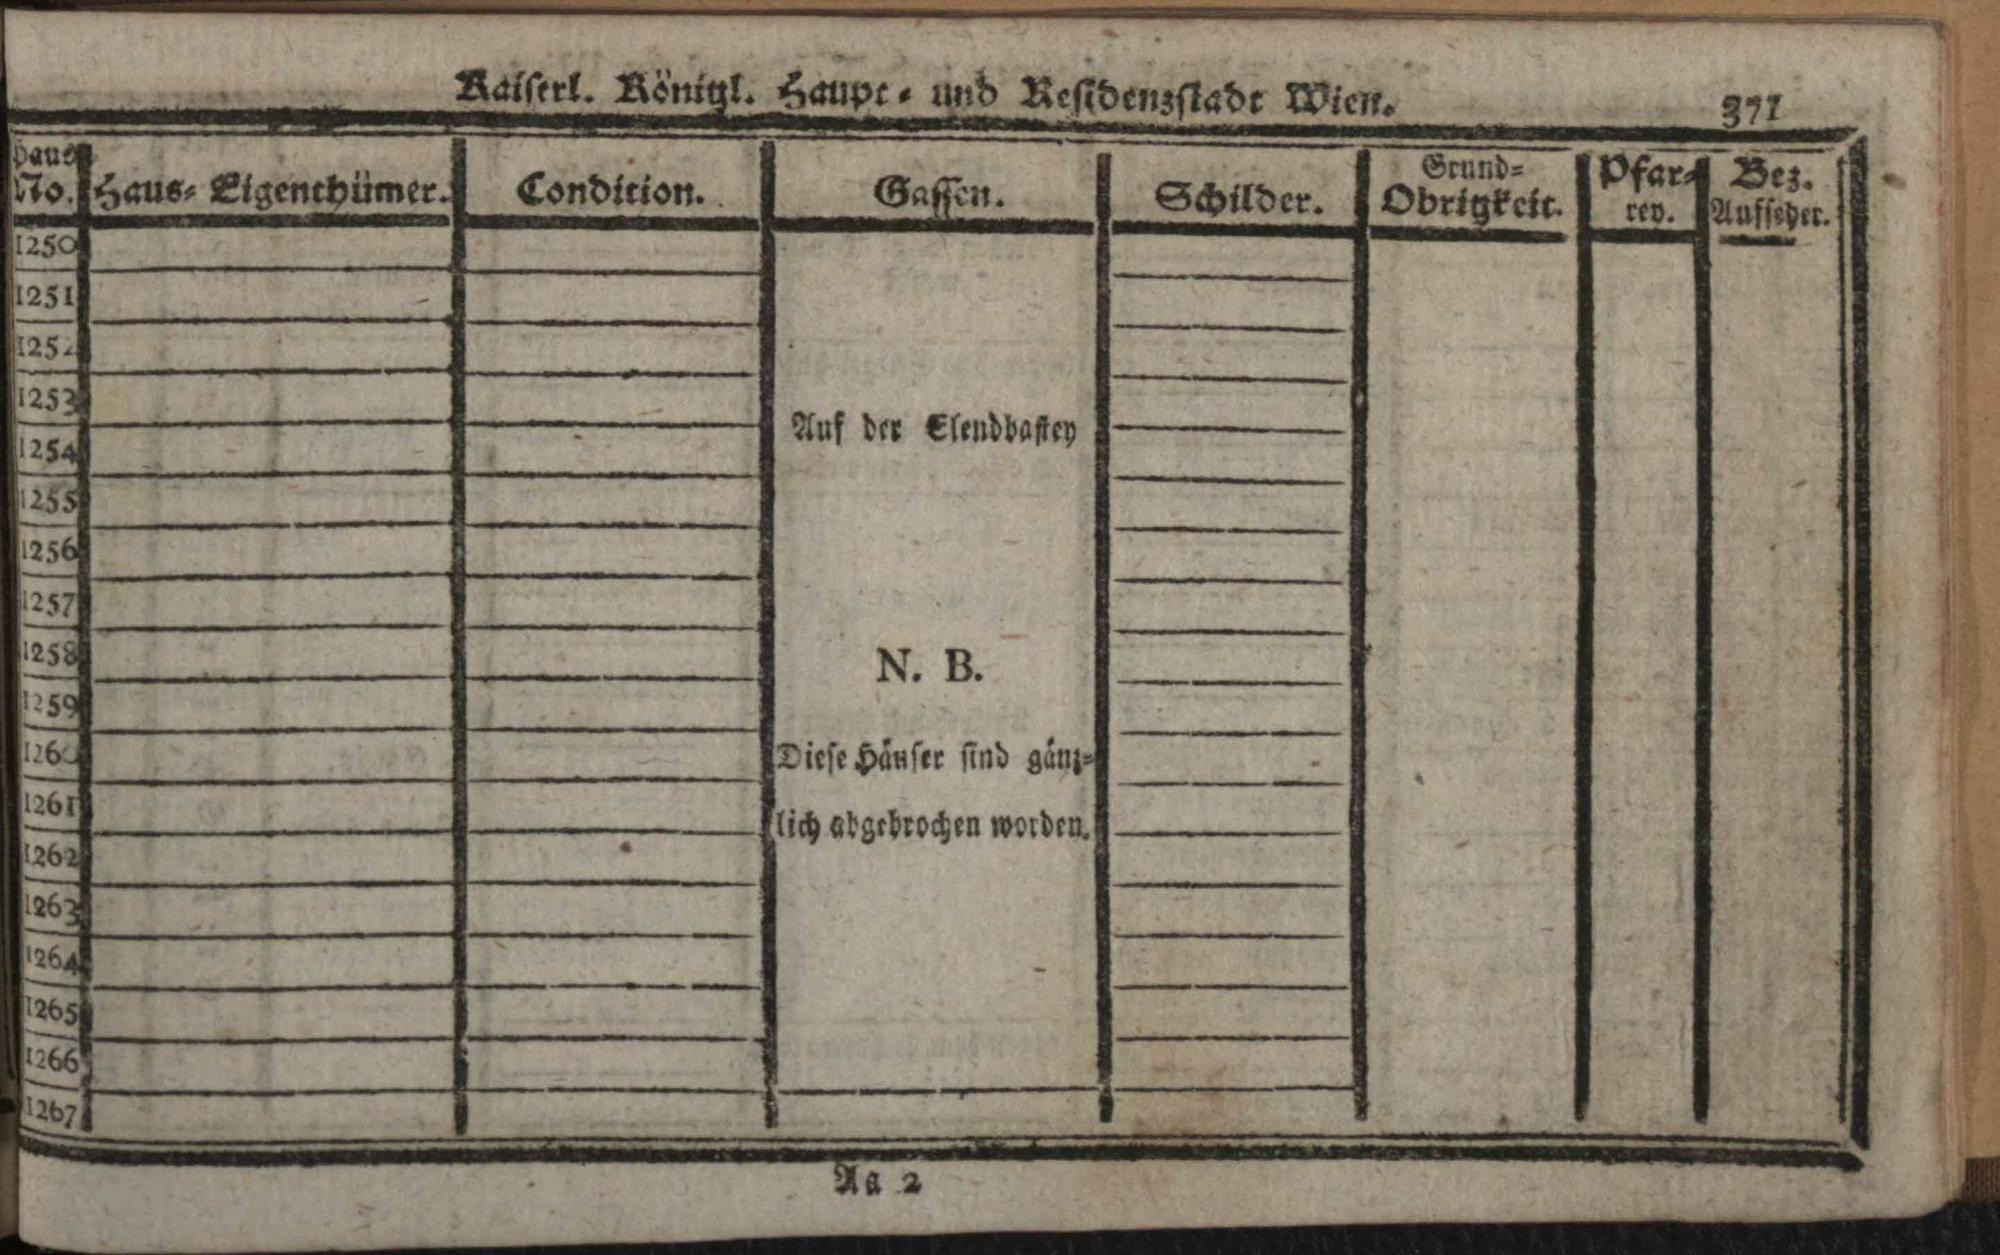 Kaiserl. Königl. Haupt- und Residenzstadt Wien. 371
Haus No. Haus-Eigenthümer. Condition. Gassen. Schilder. Grund-Obrigkeit. Pfar-rey. Bez. Aufseher.
1250
1251
1252
1253
Auf der Elendbastey
1254
1255
1256
1257
1258
N. B.
1259
1260
Diese Häuser sind gänz-
1261
lich abgebrochen worden.
1262
1263
1264
1265
1266
1267
Aa 2